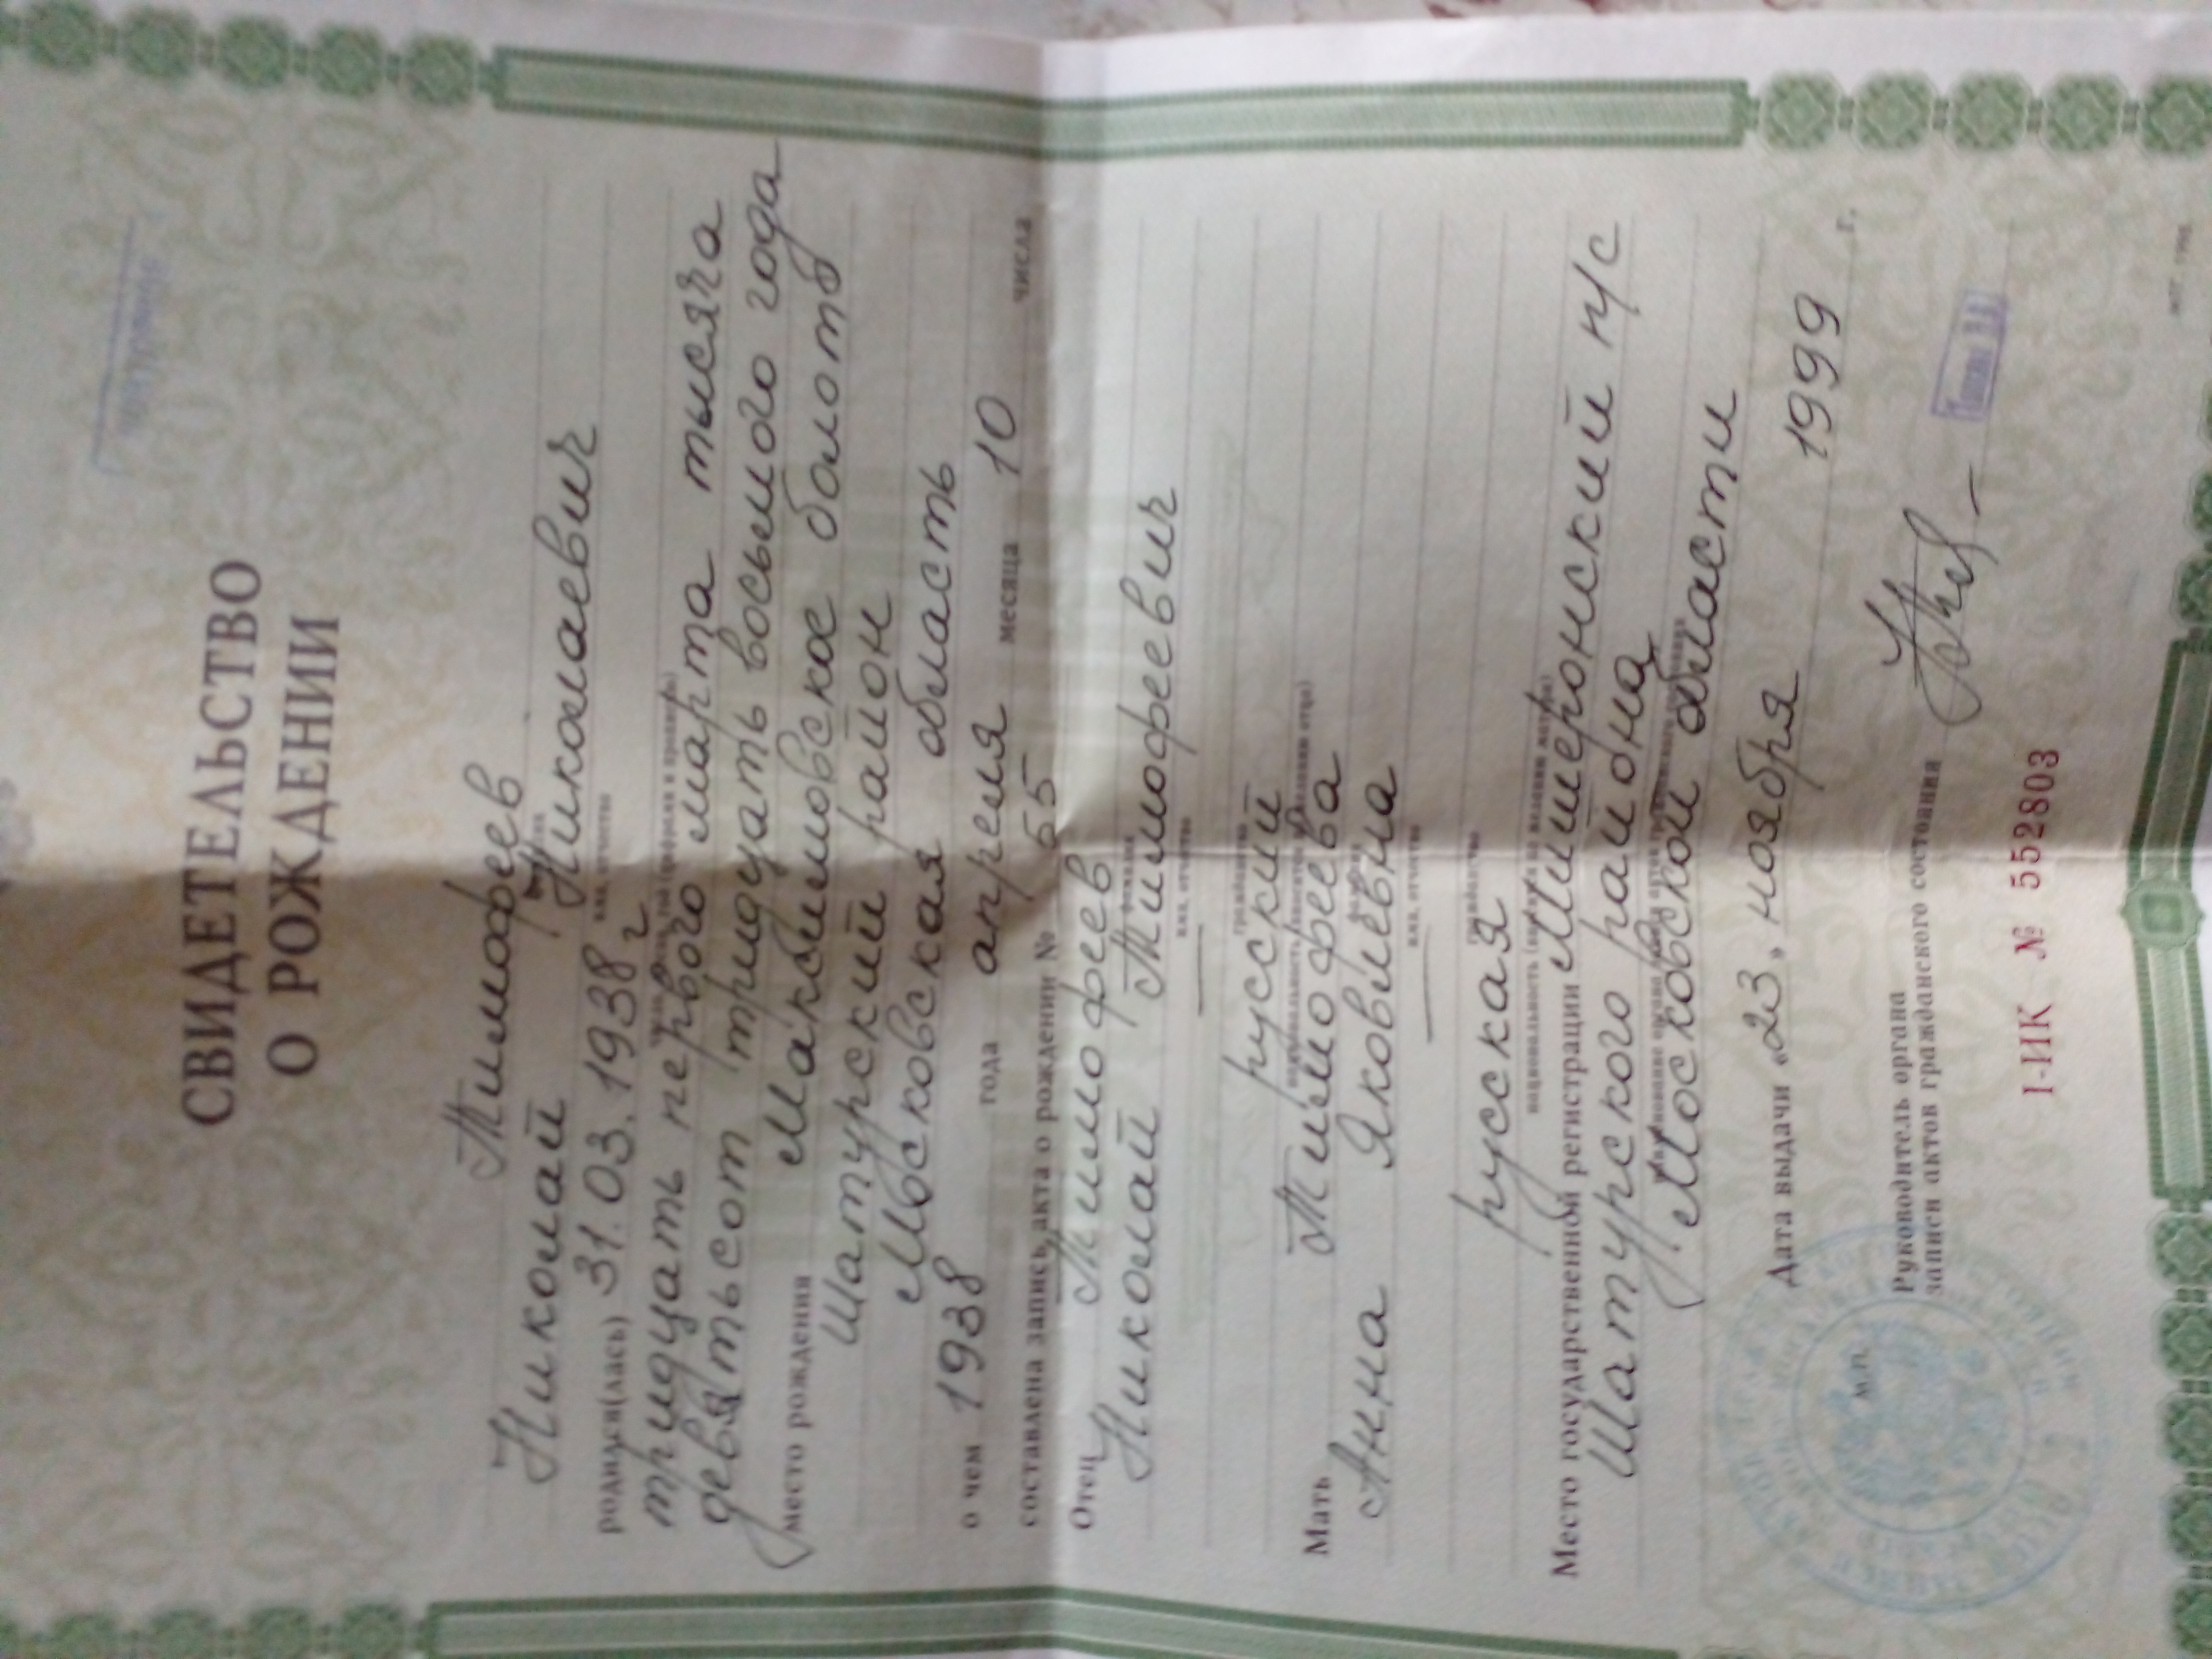 СВИДЕТЕЛЬСТВО
О РОЖДЕНИИ
Тимофеев
Николай Николаевич
имя, отчество
родился(лась) 31.03.1938 г
тридцать первого марта тысяча
девятьсот тридцать восьмого года
место рождения Максимовское болото
Шатурский район
Московская область
о чем 1938 года апреля месяца 10 числа
составлена запись акта о рождении № 65
Отец Тимофеев
фамилия
Николай Тимофеевич
имя, отчество
—
гражданство
русский
Мать Тимофеева
Анна Яковлевна
имя, отчество
—
гражданство
русская
национальность
Место государственной регистрации Мишеронский п/с
Шатурского района
Московской области
Дата выдачи «23» ноября 1999 г.
М.П.
Руководитель органа
записи актов гражданского состояния
I-ИК № 552803